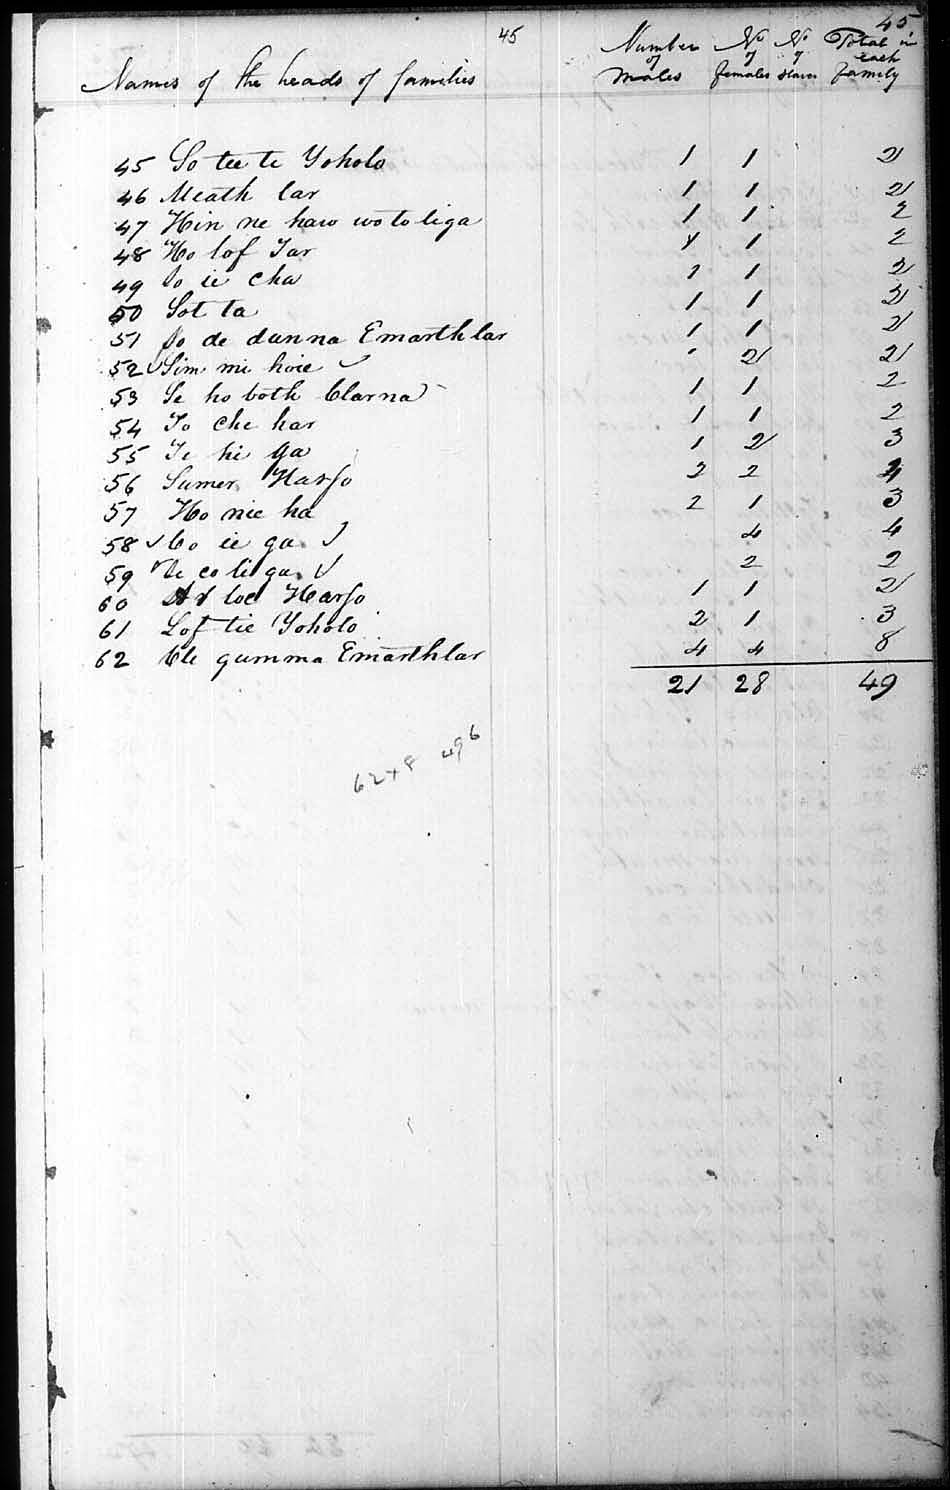 45 45
Names of the heads of families Number of Males No of females No of slaves Total in each family
45 So tee te Yoholo 1 1 2
46 Meath lar 1 1 2
47 Hin ne haw wo to liga 1 1 2
48 Ho lof Tar 1 1 2
49 ie cha 1 1 2
50 Sot ta 1 1 2
51 de dunna Emarthlar 1 1 2
52 Sim mi hoie 2 2
53 Se ho both Clarna 1 1 2
54 To che har 1 1 2
55 Te hi ga 1 2 3
56 Sumer Harjo 2 2 4
57 Ho nie ha 2 1 3
58 Co ie ga 4 4
59 co li ga 2 2
60 loc Harjo 1 1 2
61 Lof tie Yoholo 2 1 3
62 gumma Emarthlar 4 4 8
21 28 49
62+8 496